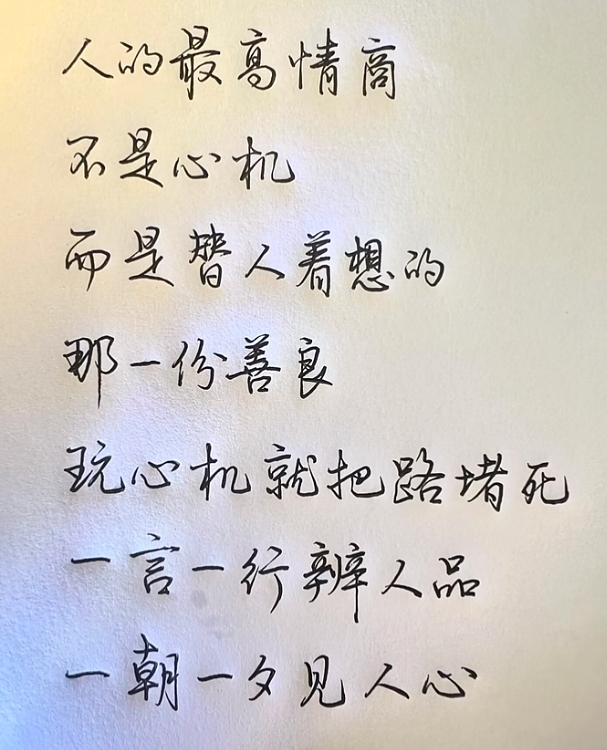 人的最高情商
不是心机
而是替人着想的
那一份善良
玩心机就把路堵死
一言一行辨人品
一朝一夕见人心